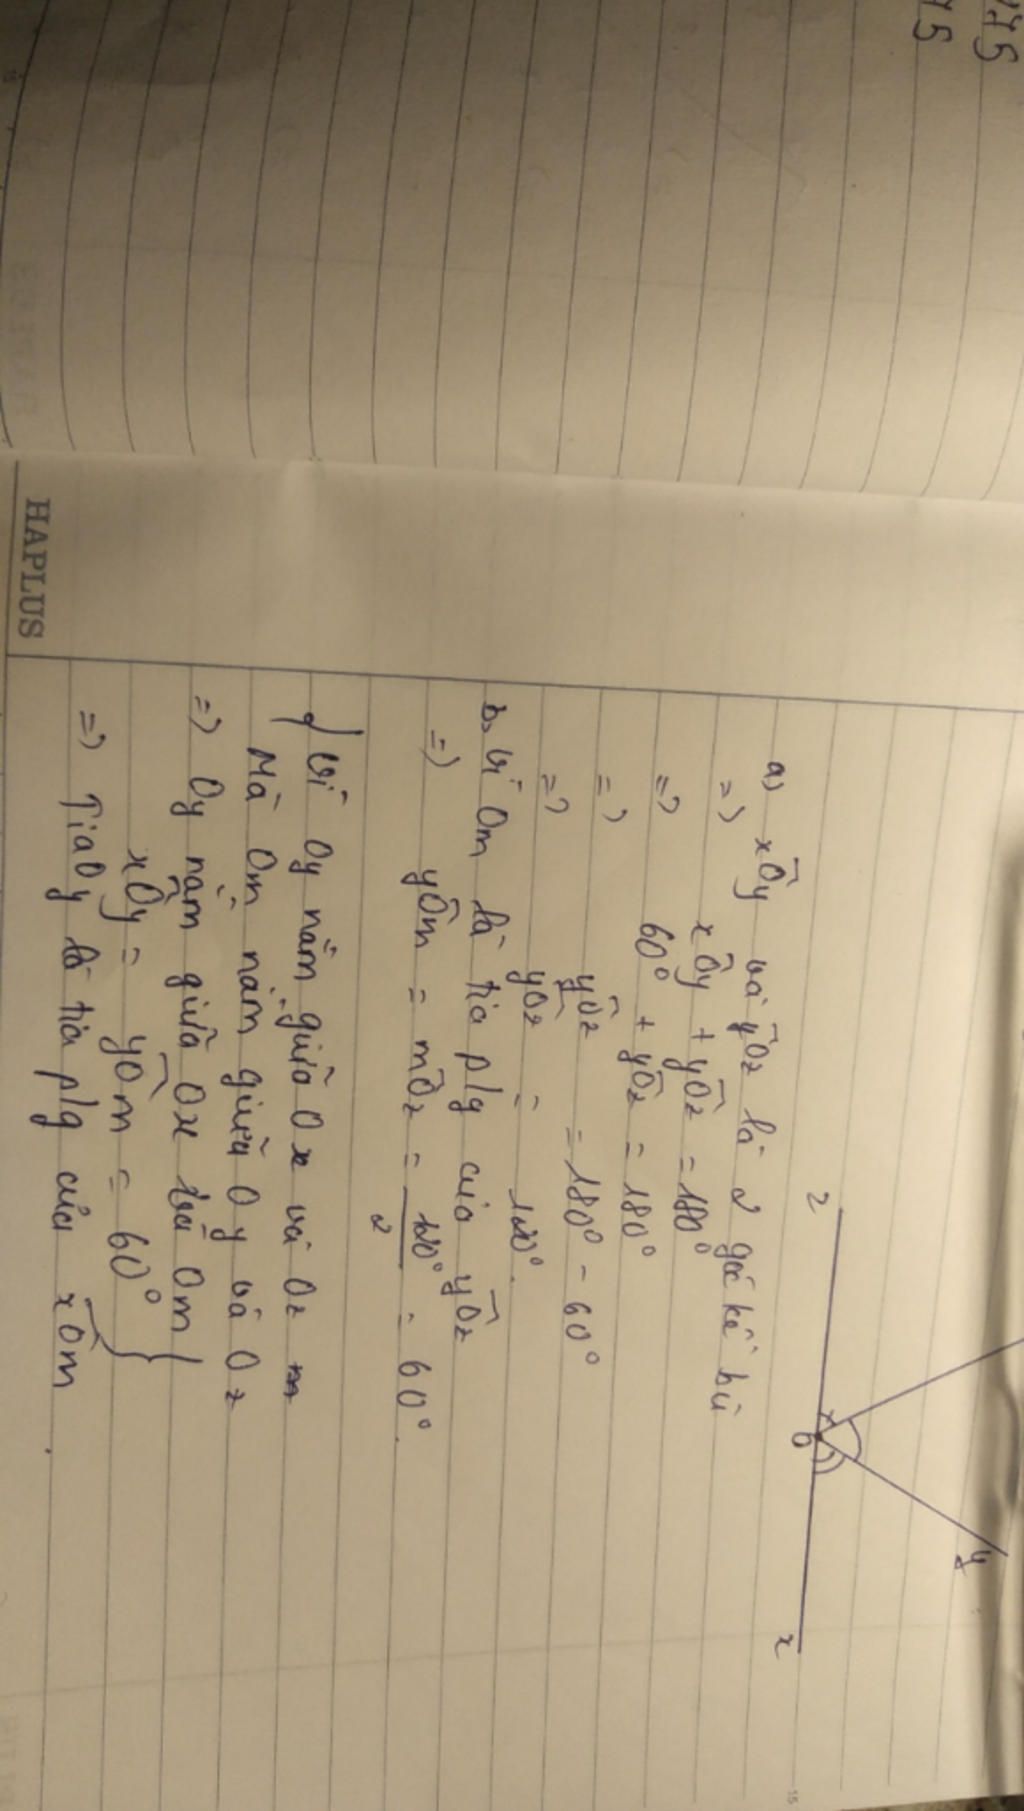 z
O
x
y
a) xÔy và yÔz là 2 góc kề bù
=> xÔy + yÔz = 180°
=> 60° + yÔz = 180°
=> yÔz = 180° - 60°
=> yÔz = 120°.
b, Vì Om là tia p/g của yÔz
=> yÔm = mÔz = 120°/2 = 60°.
Vì Oy nằm giữa Ox và Oz
Mà Om nằm giữa Oy và Oz
=> Oy nằm giữa Ox và Om
xÔy = yÔm = 60°
=> Tia Oy là tia p/g của xÔm.
HAPLUS